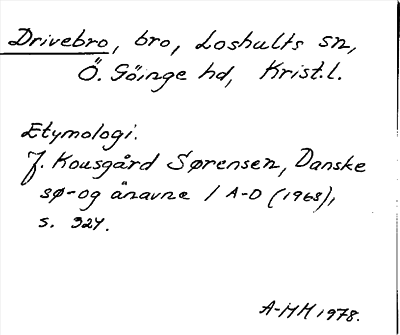 Drivebro, bro, Loshults sn,
Ö. Göinge hd, Krist.l.
Etymologi.
J. Kousgård Sørensen, Danske
sø- og ånavne 1 A-D (1968),
s. 324.
A-HH 1978.